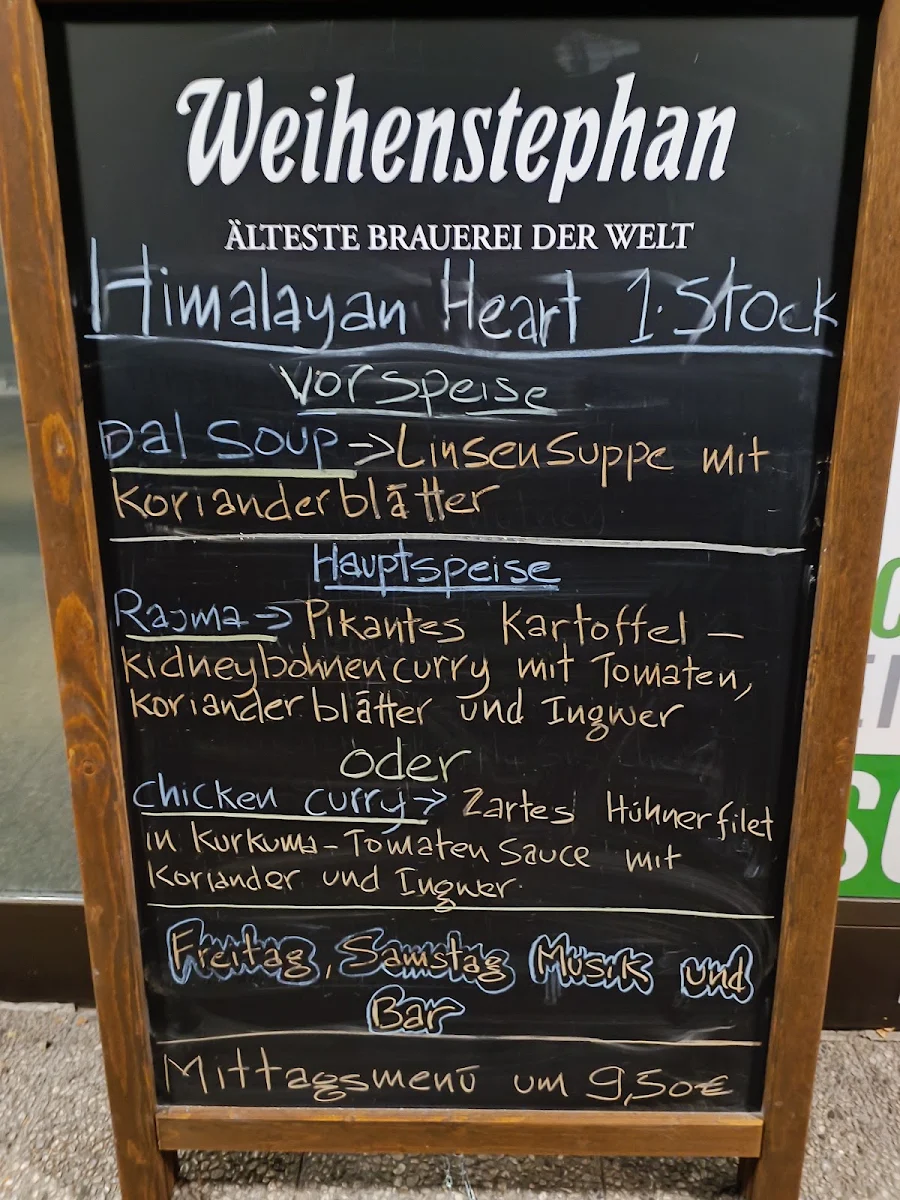 Weihenstephan
ÄLTESTE BRAUEREI DER WELT
Himalayan Heart 1.Stock
Vorspeise
Dal Soup->Linsensuppe mit
Korianderblätter
Hauptspeise
Rajma -> Pikantes Kartoffel -
kidneybohnencurry mit Tomaten,
korianderblätter und Ingwer
oder
Chicken curry-> Zartes Hühnerfilet
in Kurkuma-Tomaten Sauce mit
Koriander und Ingwer.
Freitag, Samstag Musik und
Bar
Mittagsmenü um 9,50€